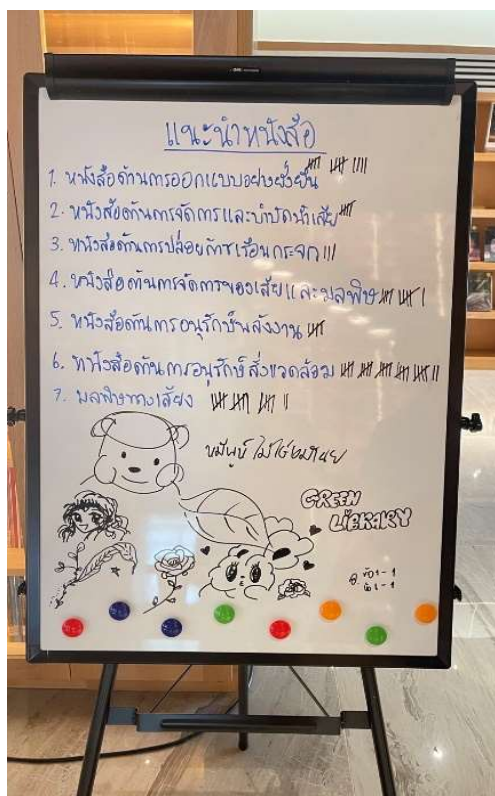 แนะนำหนังสือ
1. หนังสือด้านการออกแบบอย่างยั่งยืน
2. หนังสือด้านการจัดการและบำบัดน้ำเสีย
3. หนังสือด้านการปล่อยก๊าซเรือนกระจก
4. หนังสือด้านการจัดการของเสียและมลพิษ
5. หนังสือด้านการอนุรักษ์พลังงาน
6. หนังสือด้านการอนุรักษ์สิ่งแวดล้อม
7. มลพิษทางเสียง
หมีพูห์ ไม่ใช่หมาเนย
GREEN
LIBRARY